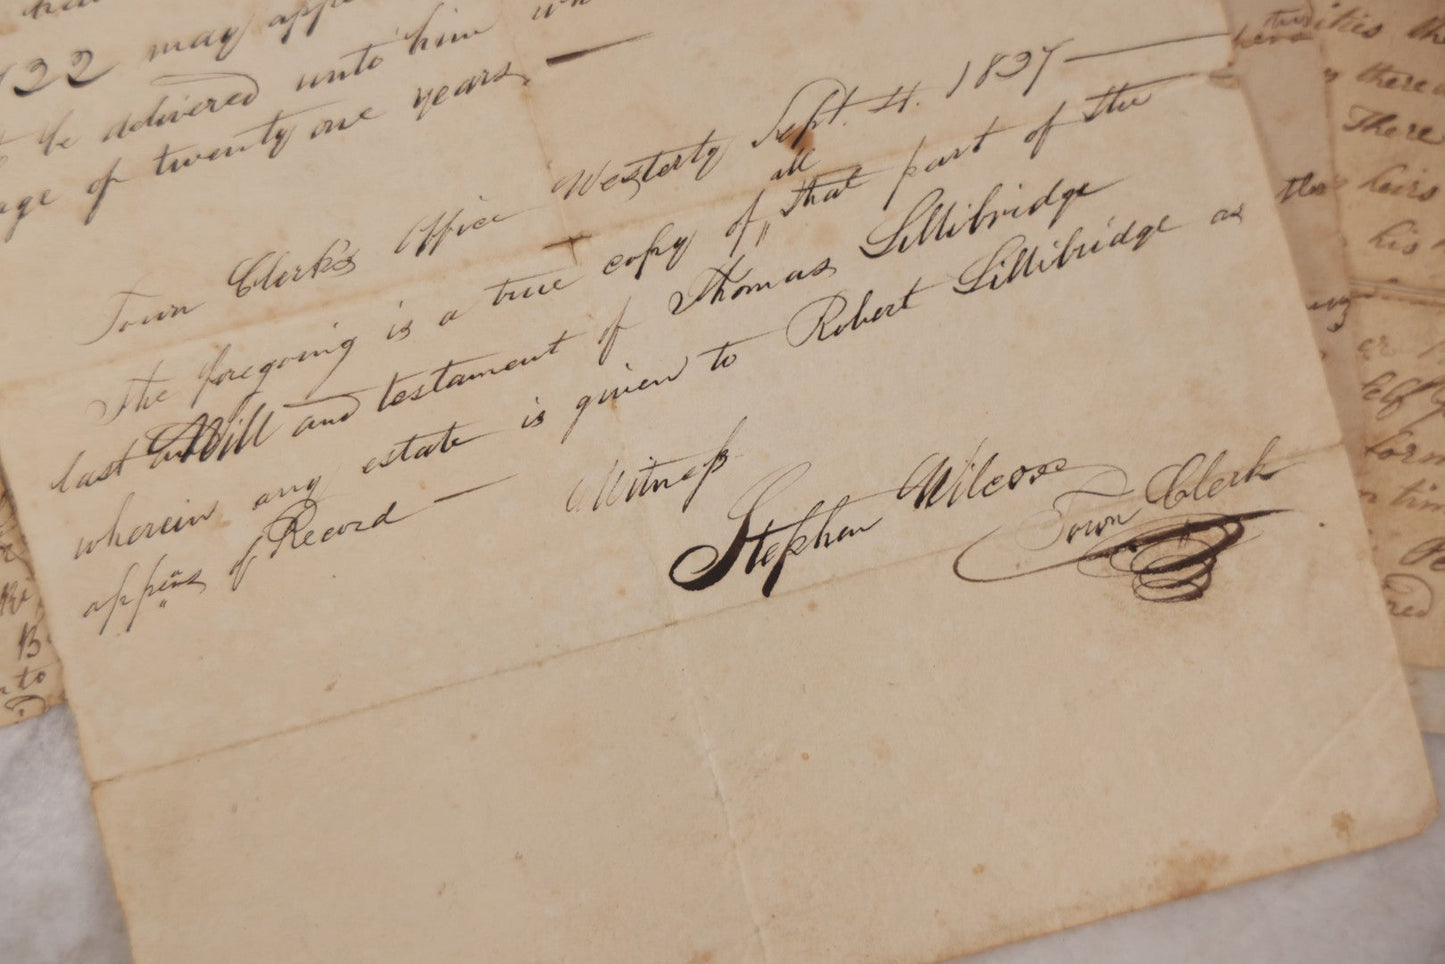 22 may
be delivered unto him
age of twenty one years. —
Town Clerk's Office Westerly Sept. 4. 1837 —
all
The foregoing is a true copy of " that part of the
last Will and testament of Thomas Lillibridge
wherein any estate is given to Robert Lillibridge as
appears of Record — Witness
Stephen Wilcox
Town Clerk
there
There
heirs
his
to